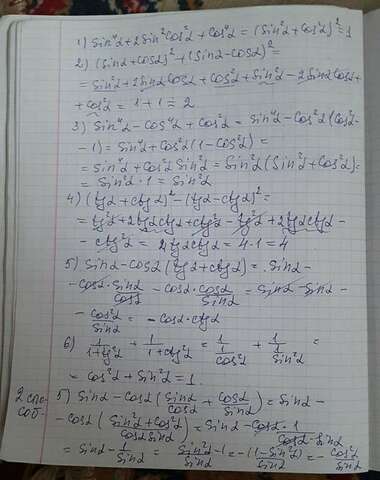 1) sin⁴α+2sin²αcos²α+cos⁴α = (sin²α+cos²α)²=1
2) (sinα+cosα)²+(sinα-cosα)²=
= sin²α+2sinαcosα+cos²α+sin²α-2sinαcosα+
+cos²α = 1+1 = 2
3) sin⁴α-cos⁴α+cos²α = sin⁴α-cos²α(cos²α-
-1) = sin⁴α+cos²α(1-cos²α) =
= sin⁴α+cos²α sin²α = sin²α(sin²α+cos²α)=
= sin²α·1 = sin²α
4) (tgα+ctgα)²-(tgα-ctgα)²=
= tg²α+2tgαctgα+ctg²α-tg²α+2tgαctgα-
-ctg²α = 2tgαctgα = 4·1 = 4
5) sinα-cosα(tgα+ctgα) = sinα-
-cosα·sinα/cosα - cosα·cosα/sinα = sinα-sinα-
-cos²α/sinα = -cosα·ctgα
6) 1/(1+tg²α) + 1/(1+ctg²α) = 1/(1/cos²α) + 1/(1/sin²α) =
= cos²α+sin²α=1.
2 спо-
соб.
5) sinα-cosα(sinα/cosα+cosα/sinα) = sinα-
-cosα((sin²α+cos²α)/(cosαsinα)) = sinα-(cosα·1)/(cosα·sinα)
= sinα-1/sinα = (sin²α-1)/sinα = -(1-sin²α)/sinα = -cos²α/sinα